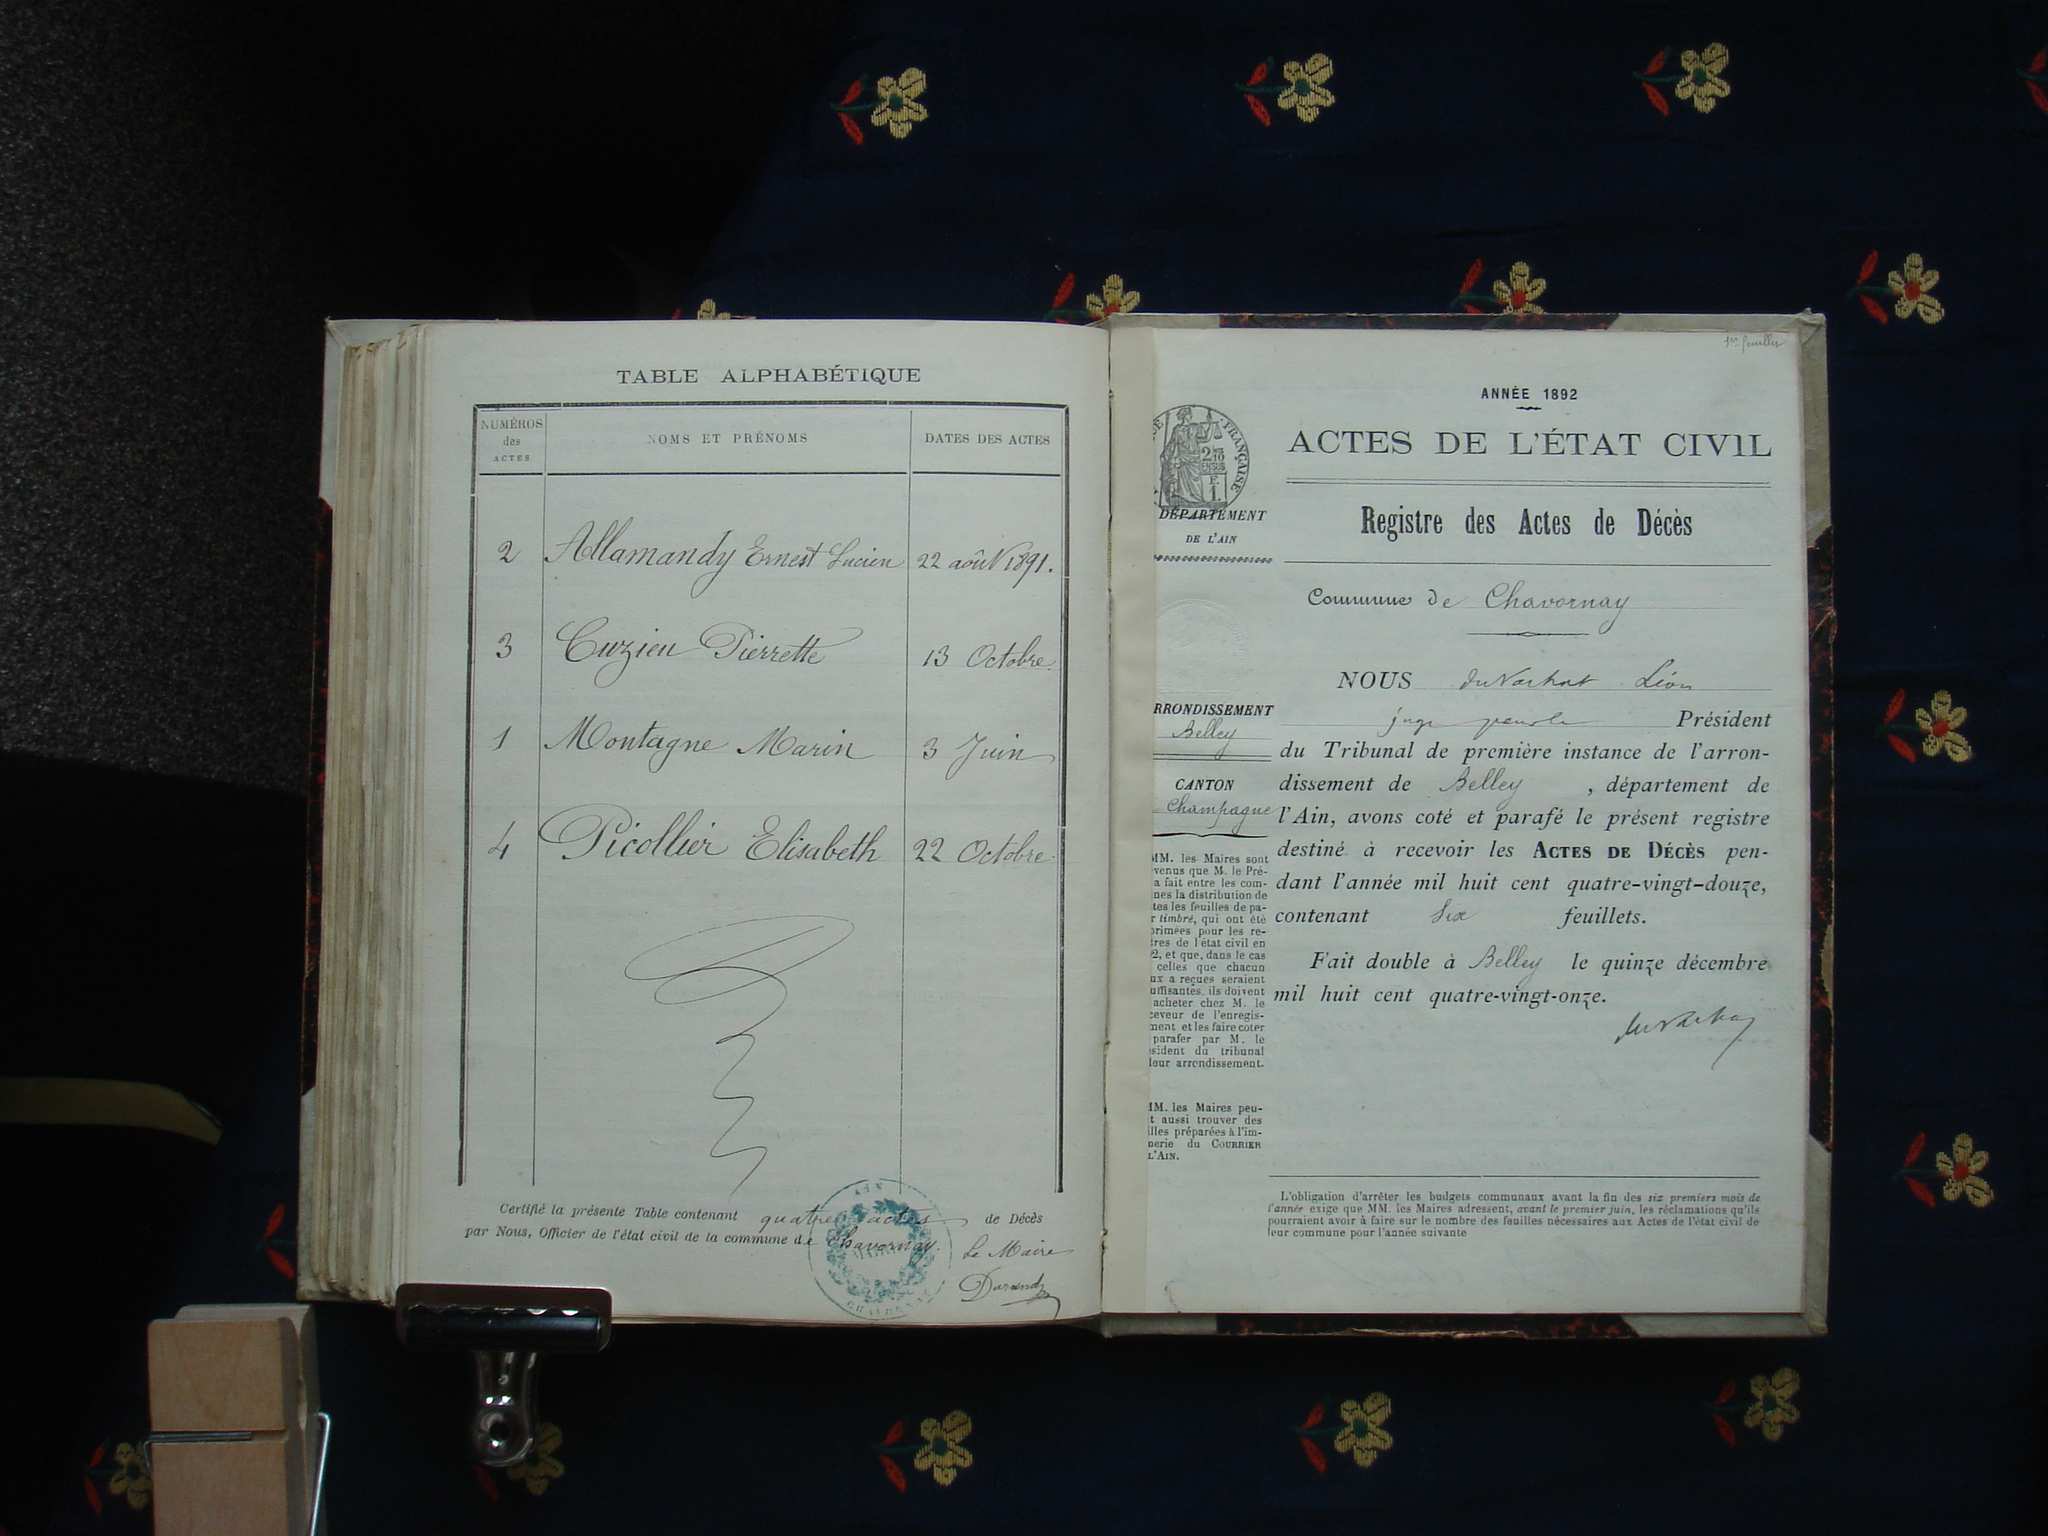 TABLE ALPHABÉTIQUE
NUMÉROS
des
ACTES
NOMS ET PRÉNOMS
DATES DES ACTES
2 Allamandy Ernest Lucien 22 août 1891.
3 Cuzieu Pierrette 13 Octobre.
1 Montagne Marin 3 Juin
4 Picollier Elisabeth 22 Octobre.
Certifié la présente Table contenant quatre actes de Décès
par Nous, Officier de l'état civil de la commune de Chavornay.
Le Maire
Durand
AIN
1er feuillet
ANNÉE 1892
ACTES DE L'ÉTAT CIVIL
Registre des Actes de Décès
Commune de Chavornay
NOUS Léon
juge Président
du Tribunal de première instance de l'arron-
dissement de Belley, département de
l'Ain, avons coté et parafé le présent registre
destiné à recevoir les ACTES DE DÉCÈS pen-
dant l'année mil huit cent quatre-vingt-douze,
contenant Six feuillets.
Fait double à Belley le quinze décembre
mil huit cent quatre-vingt-onze.
L'obligation d'arrêter les budgets communaux avant la fin des six premiers mois de
l'année exige que MM. les Maires adressent, avant le premier juin, les réclamations qu'ils
pourraient avoir à faire sur le nombre des feuilles nécessaires aux Actes de l'état civil de
leur commune pour l'année suivante
FRANÇAISE
DÉPARTEMENT
DE L'AIN
RRONDISSEMENT
Belley
CANTON
Champagne
MM. les Maires sont
venus que M. le Pré-
a fait entre les com-
nes la distribution de
tes les feuilles de pa-
r timbré, qui ont été
primées pour les re-
tres de l'état civil en
2, et que, dans le cas
celles que chacun
ux a reçues seraient
uffisantes, ils doivent
acheter chez M. le
ceveur de l'enregis-
ment et les faire coter
parafer par M. le
sident du tribunal
leur arrondissement.
MM. les Maires peu-
t aussi trouver des
illes préparées à l'im-
nerie du COURRIER
L'AIN.